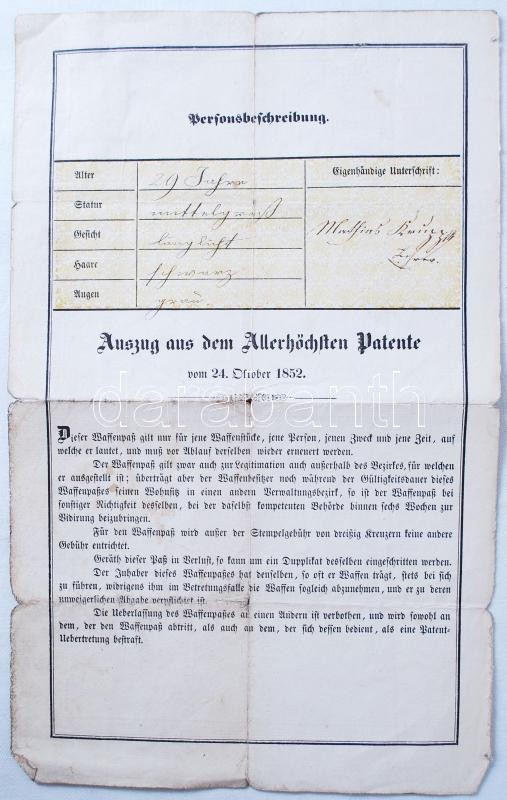 Personsbeschreibung.
Alter 29 Jahre
Eigenhändige Unterschrift:
Statur mittelgroß
Gesicht länglicht
Mathias
Haare schwarz
Augen grau
Auszug aus dem Allerhöchsten Patente
vom 24. Oktober 1852.
darabanth
Dieser Waffenpaß gilt nur für jene Waffenstücke, jene Person, jenen Zweck und jene Zeit, auf
welche er lautet, und muß vor Ablauf derselben wieder erneuert werden.
Der Waffenpaß gilt zwar auch zur Legitimation auch außerhalb des Bezirkes, für welchen
er ausgestellt ist; überträgt aber der Waffenbesitzer noch während der Gültigkeitsdauer dieses
Waffenpaßes seinen Wohnsitz in einen andern Verwaltungsbezirk, so ist der Waffenpaß bei
sonstiger Nichtigkeit desselben, bei der daselbst kompetenten Behörde binnen sechs Wochen zur
Vidirung beizubringen.
Für den Waffenpaß wird außer der Stempelgebühr von dreißig Kreuzern keine andere
Gebühr entrichtet.
Geräth dieser Paß in Verlust, so kann um ein Dupplikat desselben eingeschritten werden.
Der Inhaber dieses Waffenpaßes hat denselben, so oft er Waffen trägt, stets bei sich
zu führen, widrigens ihm im Betretungsfalle die Waffen sogleich abzunehmen, und er zu deren
unweigerlichen Abgabe verpflichtet ist.
Die Ueberlassung des Waffenpaßes an einen Andern ist verbothen, und wird sowohl an
dem, der den Waffenpaß abtritt, als auch an dem, der sich dessen bedient, als eine Patent-
Uebertretung bestraft.